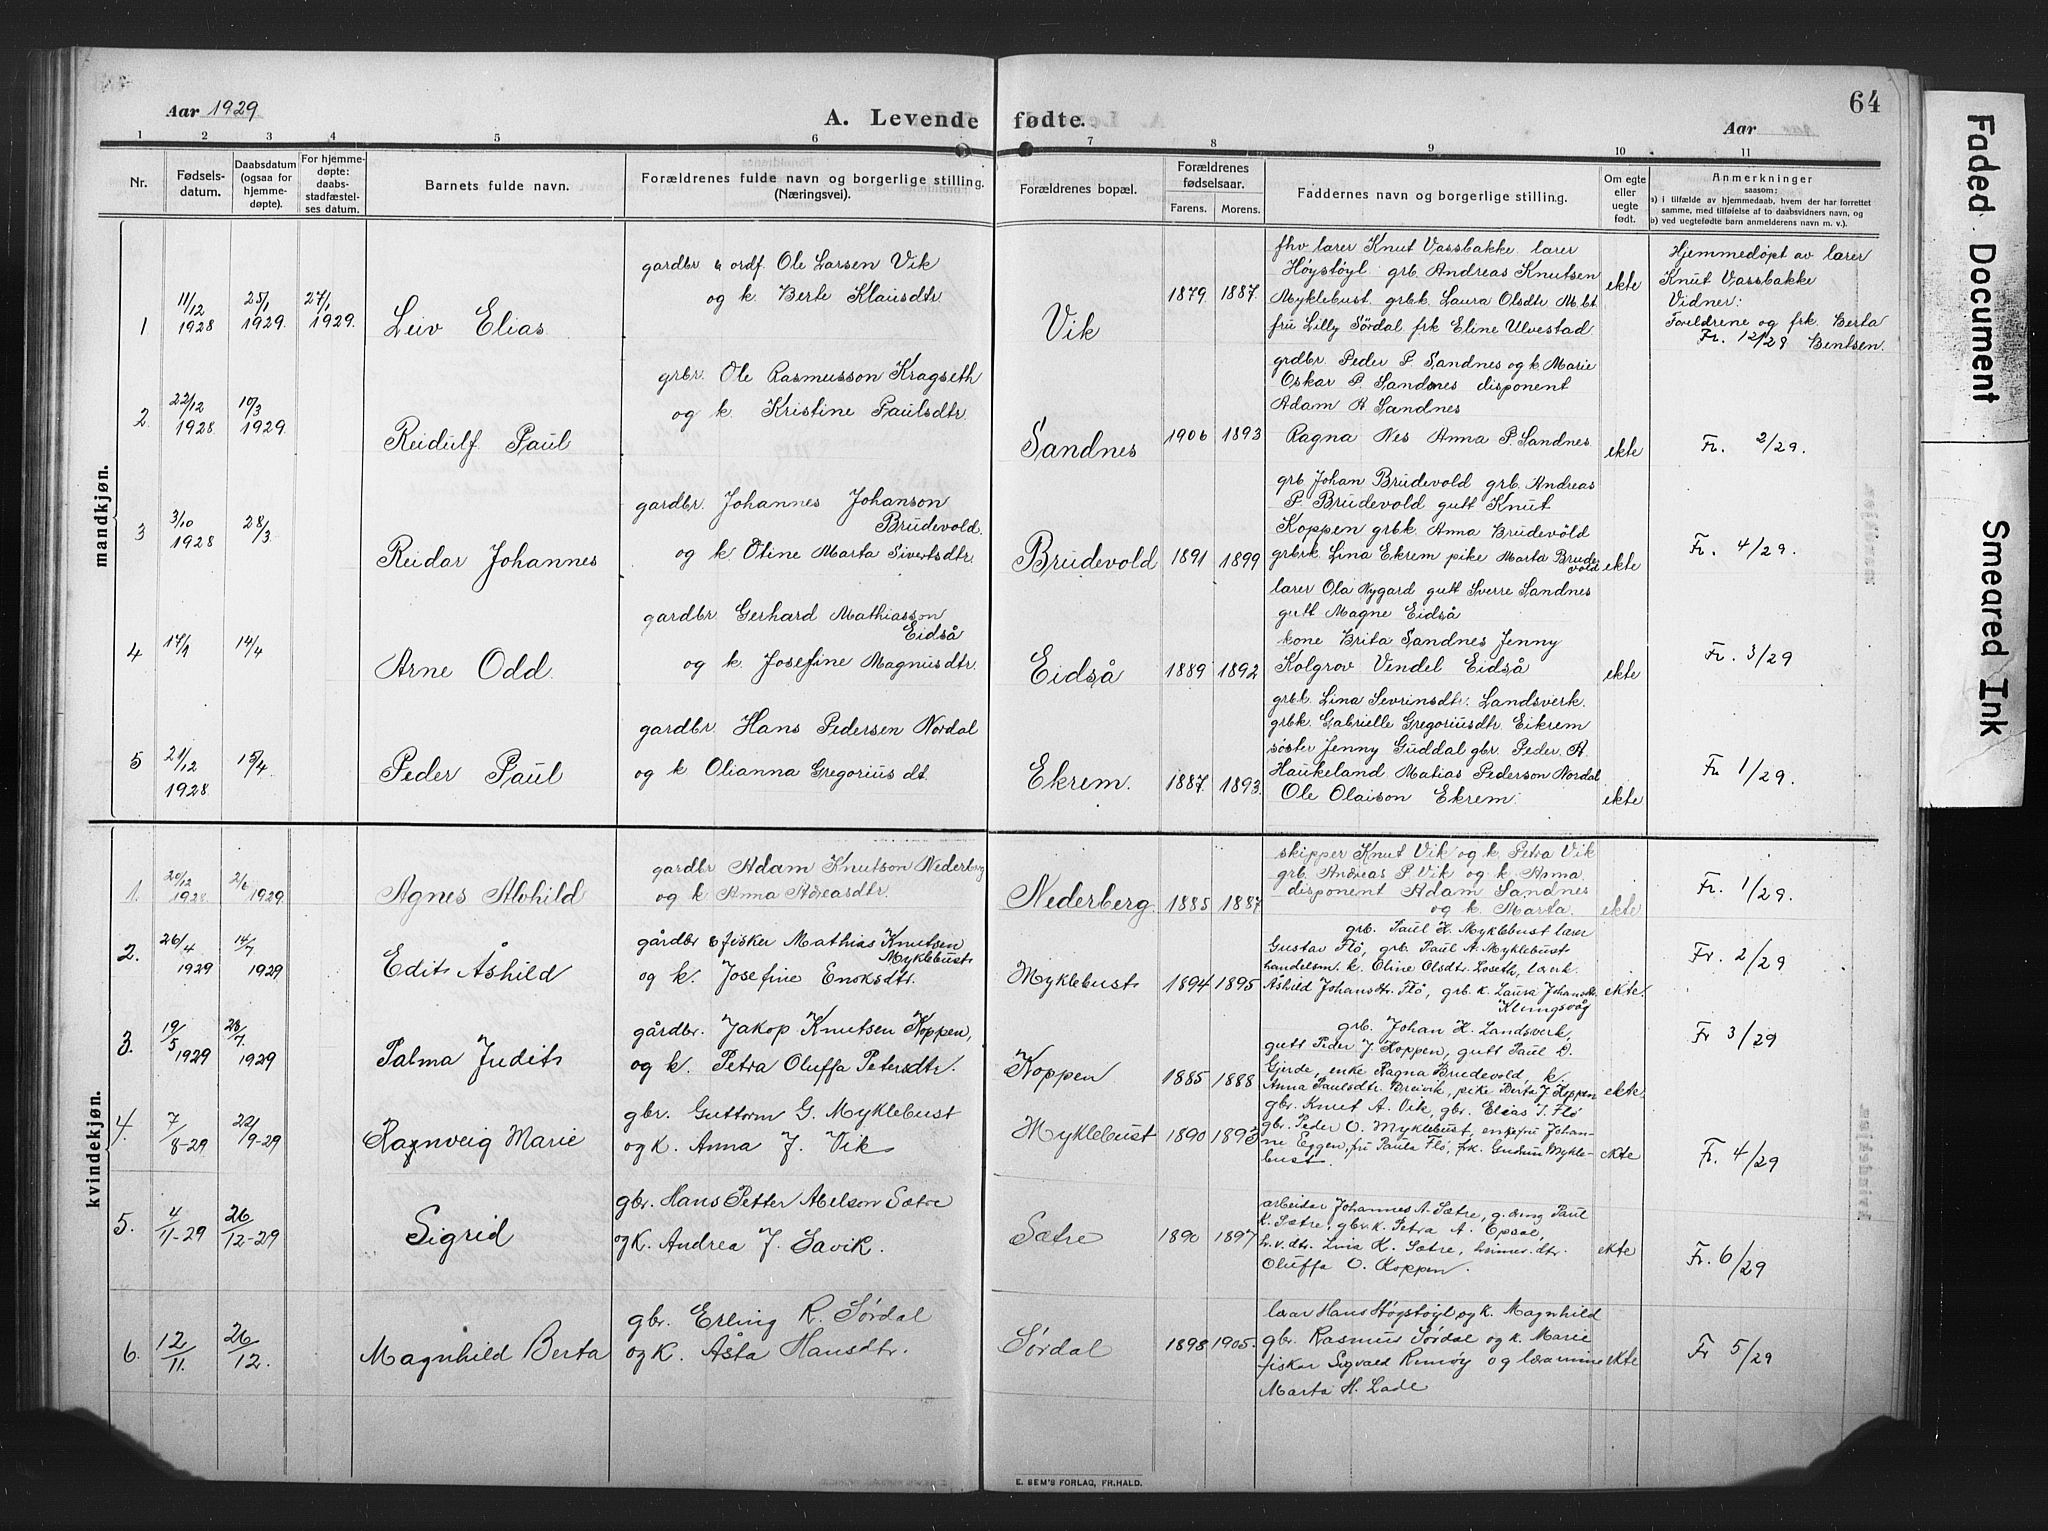 Aar 1929
A. Levende fødte.
Aar
64
1 2 3 4 5 6 7 8 9 10 11
Nr.
Fødsels-
datum.
Daabsdatum
(ogsaa for
hjemme-
døpte).
For hjemme-
døpte:
daabs-
stadfæstel-
ses datum.
Barnets fulde navn.
Forældrenes fulde navn og borgerlige stilling.
(Næringsvei).
Forældrenes bopæl.
Forældrenes
fødselsaar.
Farens. Morens.
Faddernes navn og borgerlige stilling.
Om egte
eller
uegte
født.
Anmerkninger
saasom:
a) i tilfælde av hjemmedaab, hvem der har forrettet
samme, med tilføielse af to daabsvidners navn, og
b) ved uegtefødte barn anmelderens navn m. v.).
mandkjøn.
1
11/12
1928
25/1
1929.
27/1
1929.
Leiv Elias
gardbr & ordf. Ole Larsen Vik
og k. Berte Klausdtr
Vik
1879. 1887.
fhv lærer Knut Vassbakke. lærer
Høystøyl grb. Andreas Knutsen
Myklebust. grbk. Laura Olsdtr M.bt
fru Lilly Sørdal frk Eline Ulvestad
ekte
Hjemmedøpt av lærer
Knut Vassbakke
Vidner:
Foreldrene og frk. Berta
Fr. 12/29 Bentsen.
2.
22/12
1928.
10/3
1929.
Reidulf Paul
grbr. Ole Rasmusson Kragseth
og k. Kristine Paulsdtr
Sandnes
1906 1893
grdbr. Peder P. Sandnes og k. Marie
Oskar P. Sandnes disponent
Adam A Sandnes
Ragna Nes Anna P. Sandnes
ekte
Fr. 2/29.
3
3/10
1928
28/3.
Reidar Johannes
gardbr. Johannes Johanson
Brudevold.
og k. Otine Marta Sivertsdtr.
Brudevold
1891 1899
grb Johan Brudevold grb. Andreas
P. Brudevold gutt Knut
Koppen grbk. Anna Brudevold
grbrk. Lina Ekrem pike Marta Brude
vold
ekte
Fr. 4/29.
4
17/1
14/4
Arne Odd.
gardbr Gerhard Mathiasson
Eidså
og k. Josefine Magnusdtr.
Eidså
1889 1892
lærer Ola Nygard gutt Sverre Sandnes
gutt Magne Eidså
kone Brita Sandnes Jenny
Kolgrov Vendel Eidså
ekte
Fr. 3/29
5
21/12
1928.
15/4.
Peder Paul
gardbr Hans Pedersen Nordal
og k Olianna Gregorius dt.
Ekrem.
1887. 1893.
grbk. Lina Sevrinsdtr. Landsverk.
grbk. Gabrielle Gregoriusdtr. Eikrem
søster Jenny Guddal gbr. Peder A.
Haukeland Matias Pederson Nordal
Ole Olaison Ekrem.
ekte
Fr. 1/29.
kvindekjøn.
1.
20/12
1928.
2/6
1929.
Agnes Alvhild
gardbr Adam Knutson Nederberg
og k Anna Adreasdtr.
Nederberg.
1885 1887
skipper Knut Vik og k. Petra Vik
grb. Andreas P. Vik og k. Anna
disponent Adam Sandnes
og k. Marta.
ekte
Fr. 1/29.
2.
26/4
1929
14/7
1929
Edit Åshild
gårdbr & fisker Mathias Knutsen
Myklebust
og k. Josefine Enoksdtr.
Myklebust
1894 1895
grb. Paul K. Myklebust lærer
Gustav Flø, grb. Paul A. Myklebust
handelsm. k. Oline Olsdtr. Loseth, lær k.
Åshild Johansdtr. Flø, grb. k. Laura Johansdtr
Klungsvåg
ekte.
Fr. 2/29
3.
19/5
1929
28/7
1929
Palma Judit
gårdbr. Jakop Knutsen Koppen,
og k. Petra Oluffa Petersdtr.
Koppen
1885 1888
grb. Johan K. Landsverk,
gutt Peder J. Koppen, gutt Paul D.
Gjerde, enke Ragna Brudevold, k.
Anna Paulsdtr. Breivik, pike Berta J. Koppen
ekte.
Fr 3/29
4.
7/8-29
22/9-29
Ragnveig Marie
gbr. Guttorm G. Myklebust
og K. Anna J. Vik
Myklebust
1890 1893
gbr. Knut A. Vik, gbr. Elias I. Flø
gbr. Peder O. Myklebust, enkefru Johan-
ne Eggen, fru Paula Flø, frk. Gudrun Mykle-
bust.
ekte
Fr. 4/29
5.
4/11-29
26/12-29
Sigrid
gbr. Hans Petter Abelson Sætre
og K. Andrea J. Savik.
Sætre
1890 1897
arbeidar Johannes A. Sætre, g. dreng Paul
K. Sætre, gbr. k. Petra A. Opsal,
hr. v. dtr. Lina K. Sætre, heimev. dtr.
Oluffa O. Koppen.
ekte
Fr. 6/29
6.
12/11.
26/12.
Magnhild Berta
gbr. Erling R. Sørdal
og K. Åsta Hansdtr.
Sørdal
1898 1905.
lærar Hans Høgstøyl og k. Magnhild
gbr. Rasmus Sørdal og k. Marie
fiskar Sigvald Remøy og lærarinne
Marta H. Lade
ekte
Fr 5/29
E. SEM'S FORLAG, FR.HALD.
Faded Document
Smeared Ink